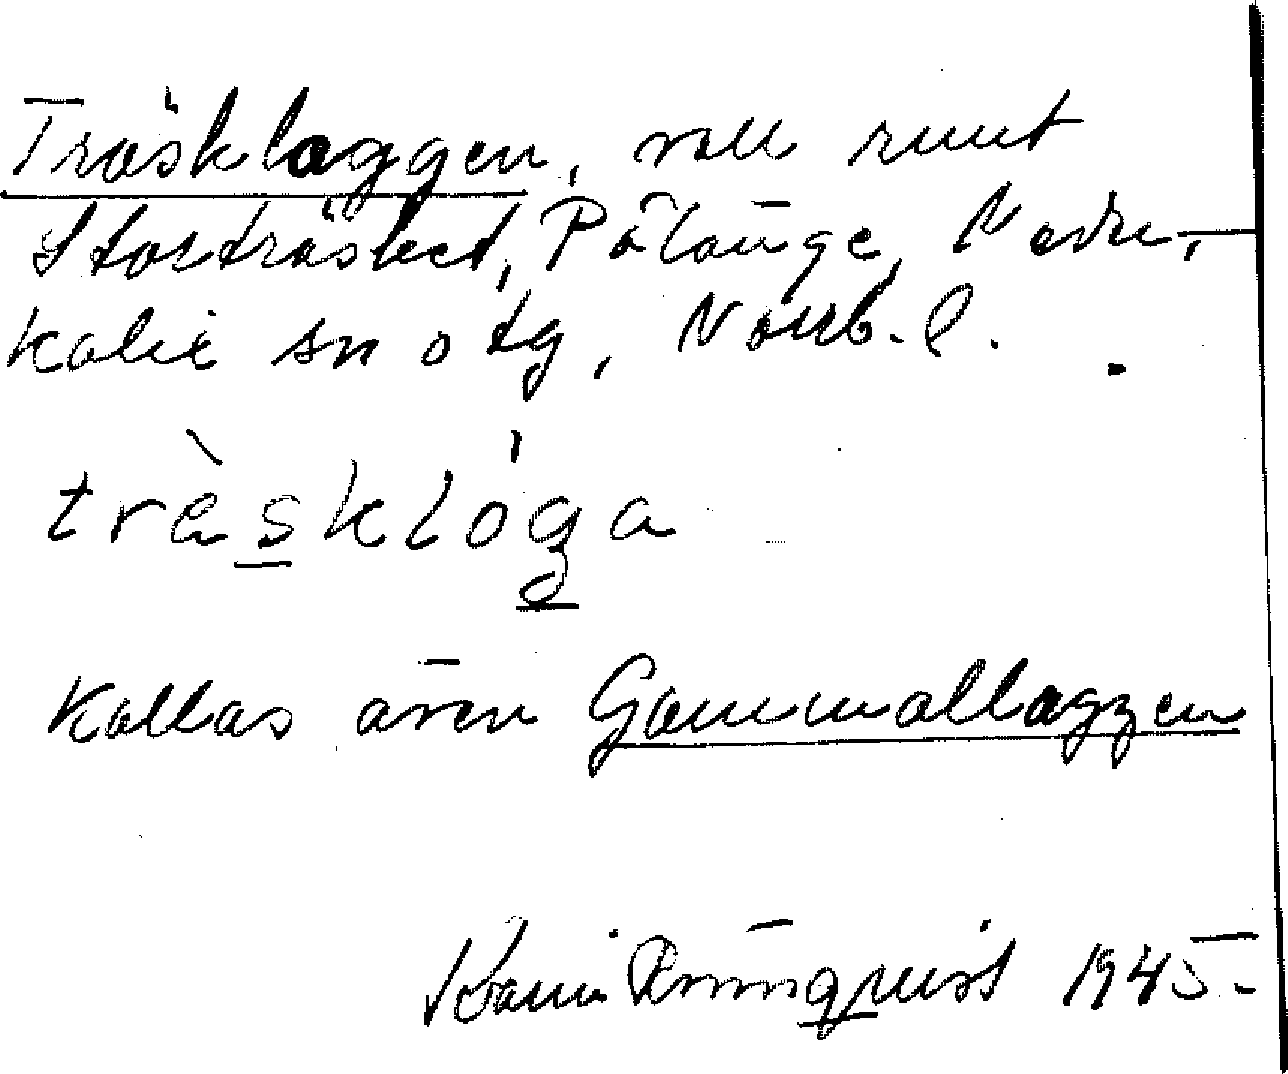 Träsklaggen, vall runt
Storträsket, Pålänge, Neder-
kalix sn o tg, Norrb. l.
trèsklóga
Kallas även Gammallaggen
Karin Rönnqvist 1945.